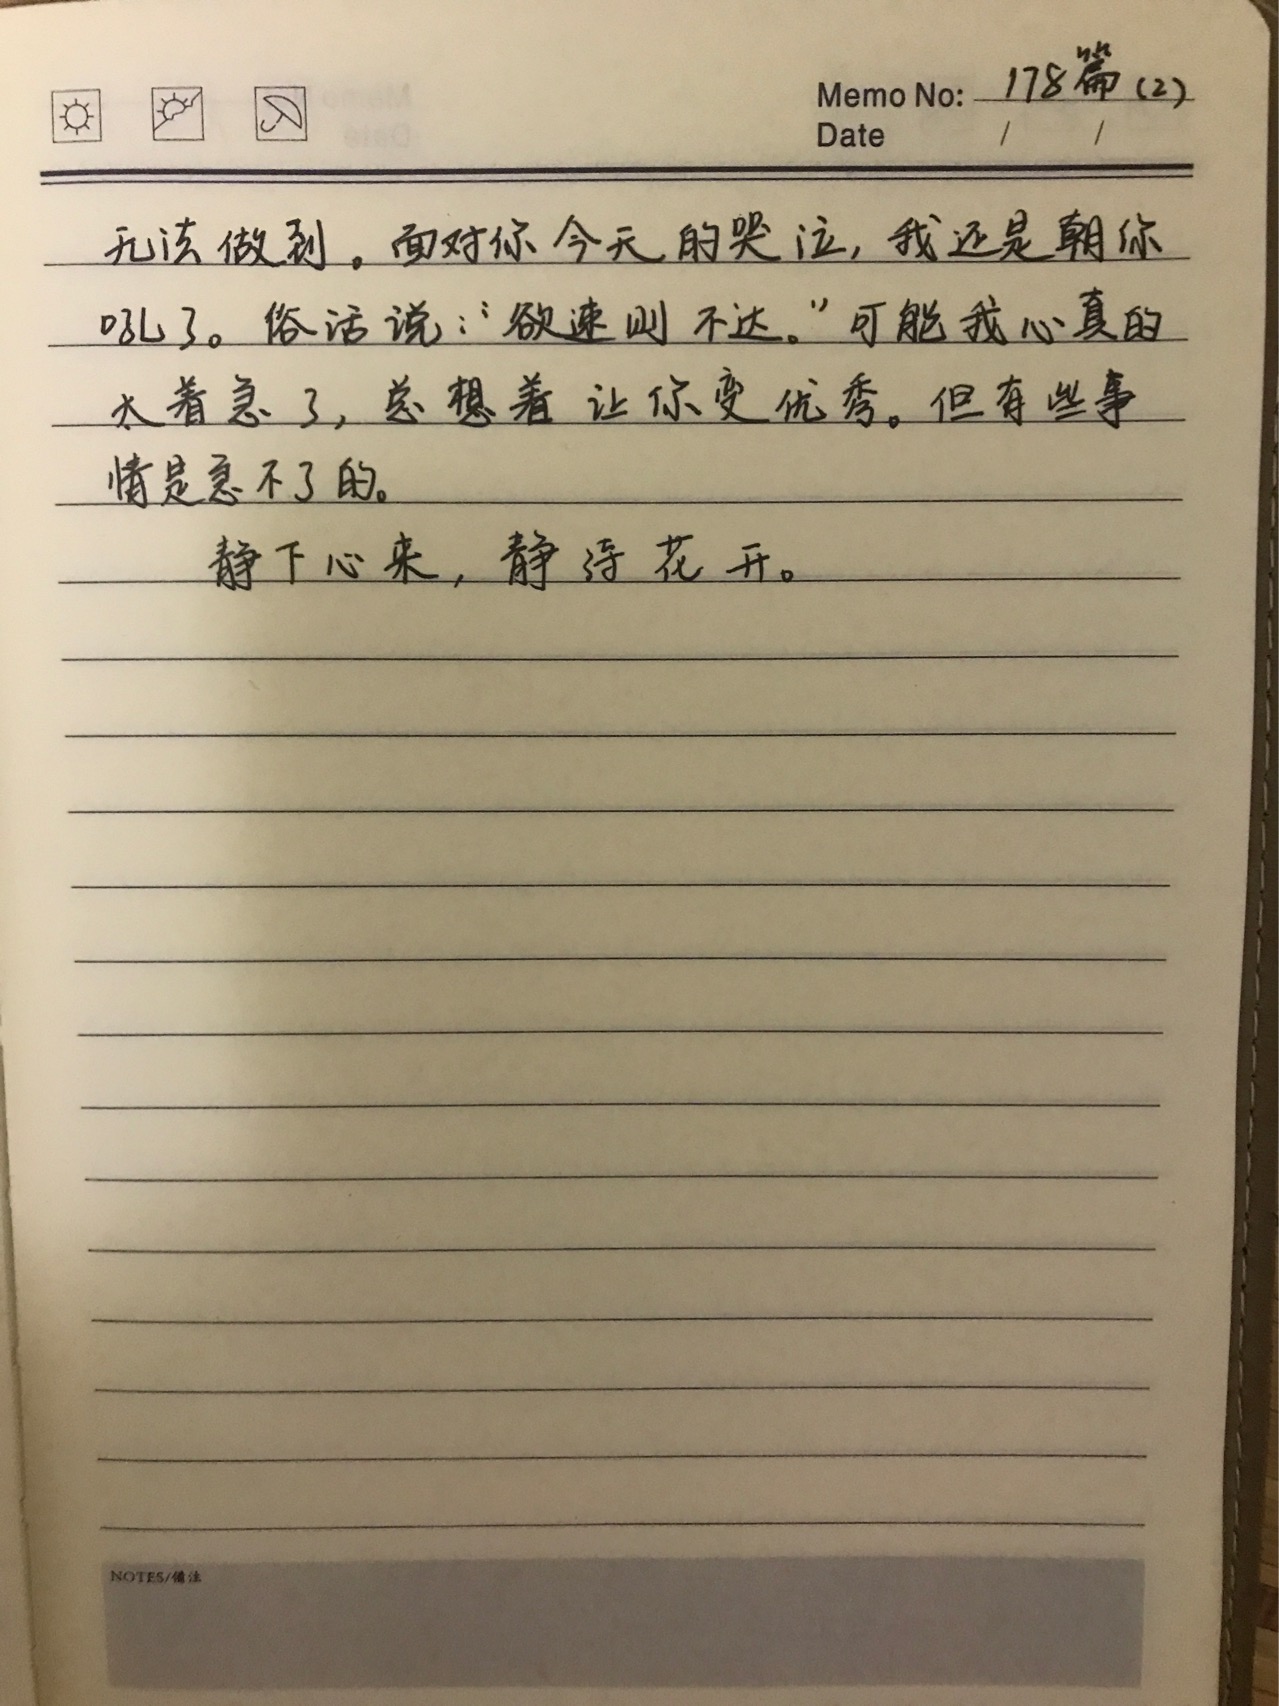 Memo No: 178篇(2)
Date / /
无法做到。面对你今天的哭泣,我还是朝你
吼了。俗话说:“欲速则不达。”可能我心真的
太着急了,总想着让你变优秀。但有些事
情是急不了的。
静下心来,静待花开。
NOTES/備注